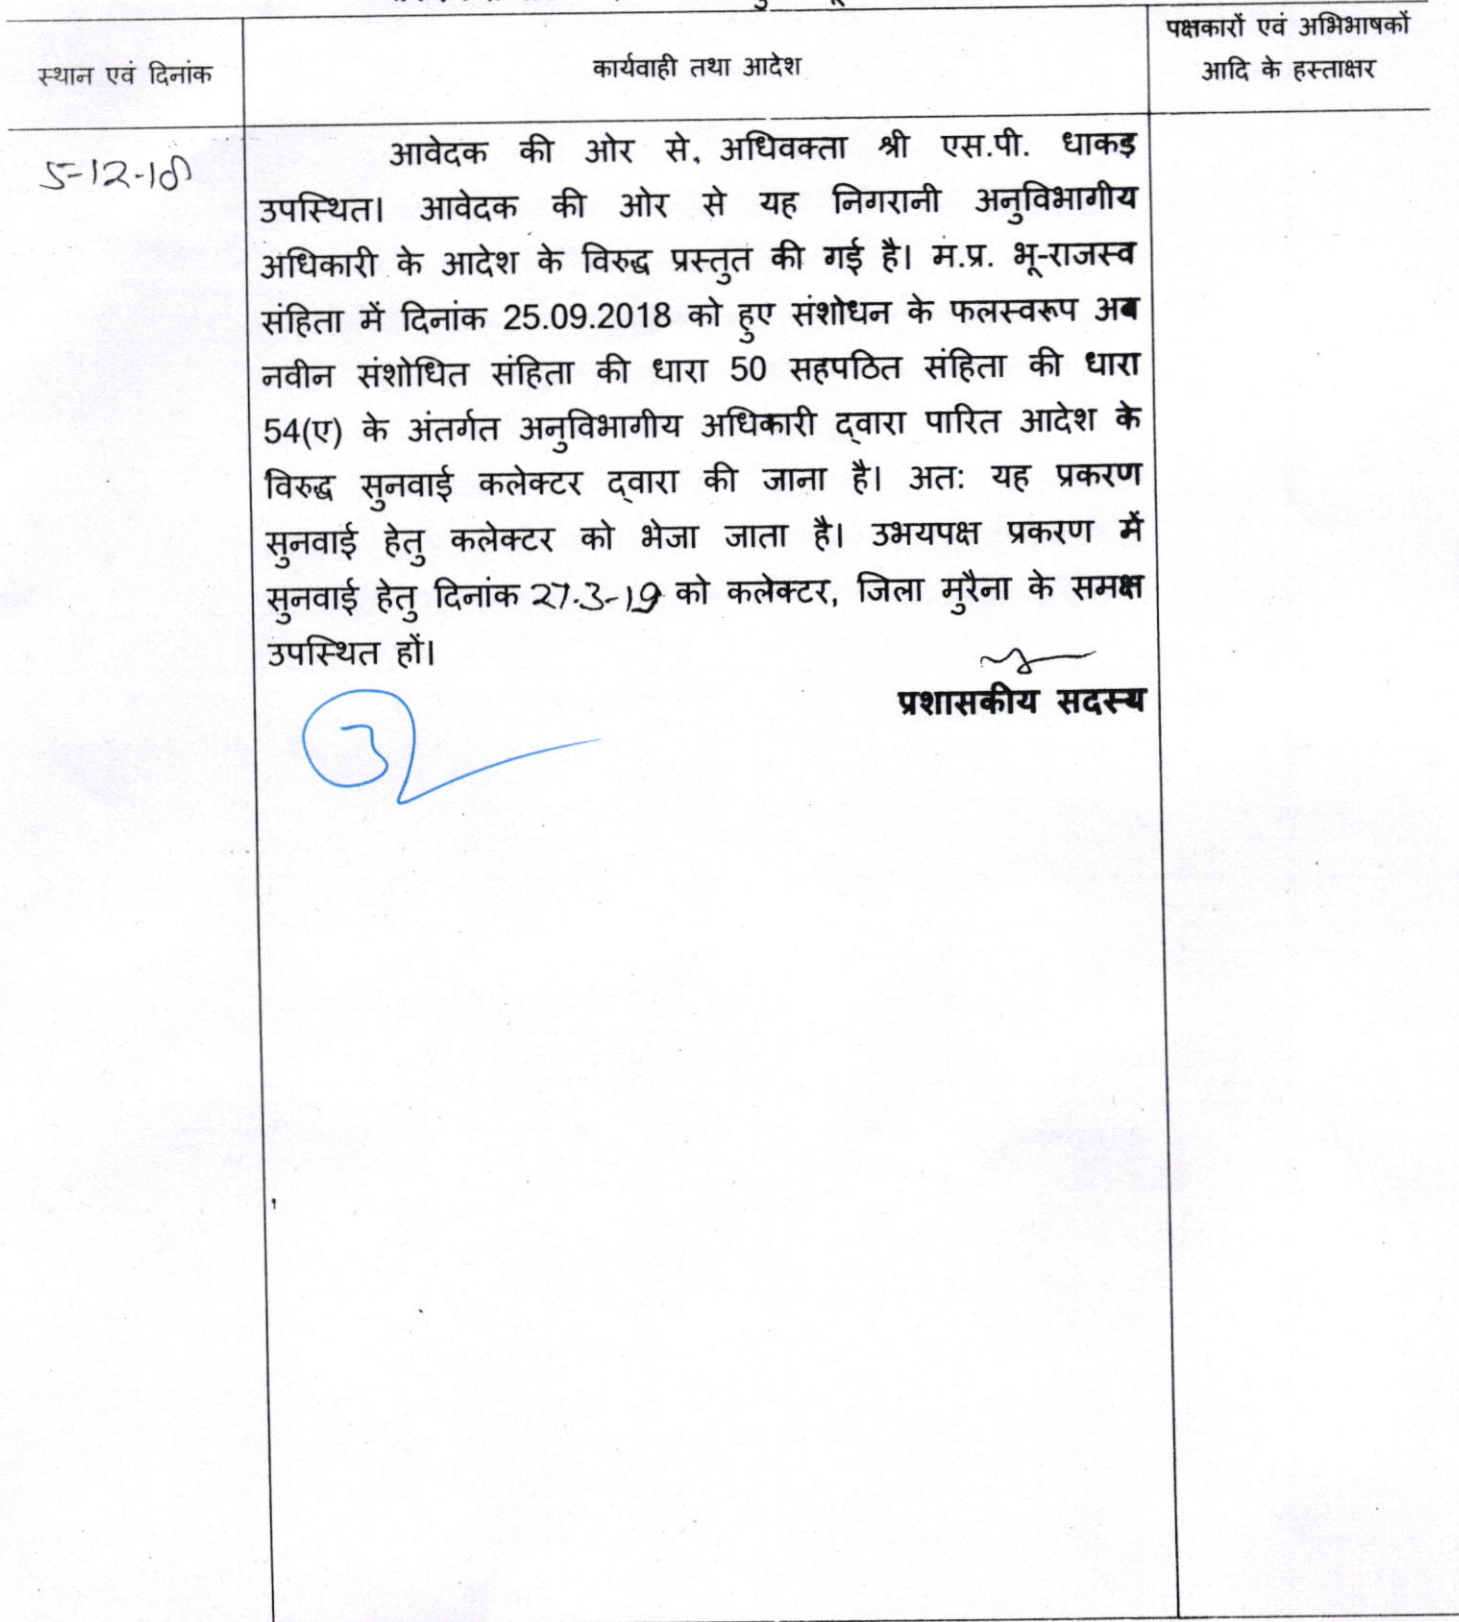 पक्षकारों एवं अभिभाषकों
स्थान एवं दिनांक
कार्यवाही तथा आदेश
आदि के हस्ताक्षर
5-12-18
आवेदक की ओर से, अधिवक्ता श्री एस.पी. धाकड़
उपस्थित। आवेदक की ओर से यह निगरानी अनुविभागीय
अधिकारी के आदेश के विरुद्ध प्रस्तुत की गई है। म.प्र. भू-राजस्व
संहिता में दिनांक 25.09.2018 को हुए संशोधन के फलस्वरूप अब
नवीन संशोधित संहिता की धारा 50 सहपठित संहिता की धारा
54(ए) के अंतर्गत अनुविभागीय अधिकारी द्वारा पारित आदेश के
विरुद्ध सुनवाई कलेक्टर द्वारा की जाना है। अतः यह प्रकरण
सुनवाई हेतु कलेक्टर को भेजा जाता है। उभयपक्ष प्रकरण में
सुनवाई हेतु दिनांक 27.3-19 को कलेक्टर, जिला मुरैना के समक्ष
उपस्थित हों।
प्रशासकीय सदस्य